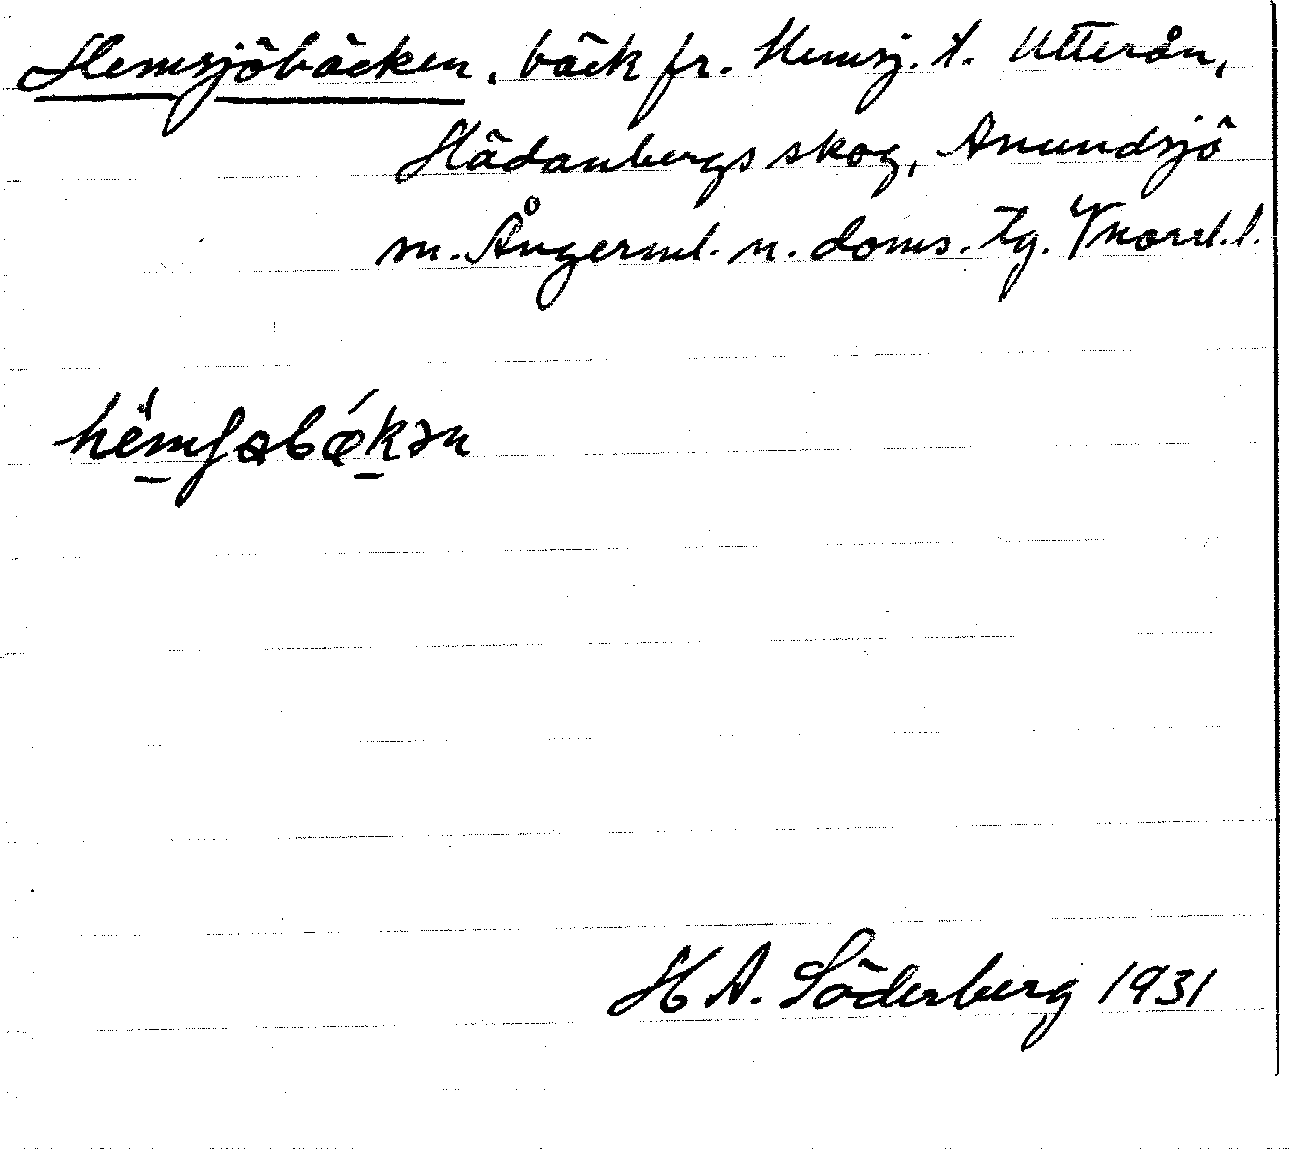 Hemsjöbäcken, bäck fr. Hemsj. t. Utterån,
Hädanbergs skog, Anundsjö
m. Ångerml. n. doms. tg. Vnorrl. l.
H A. Söderberg 1931